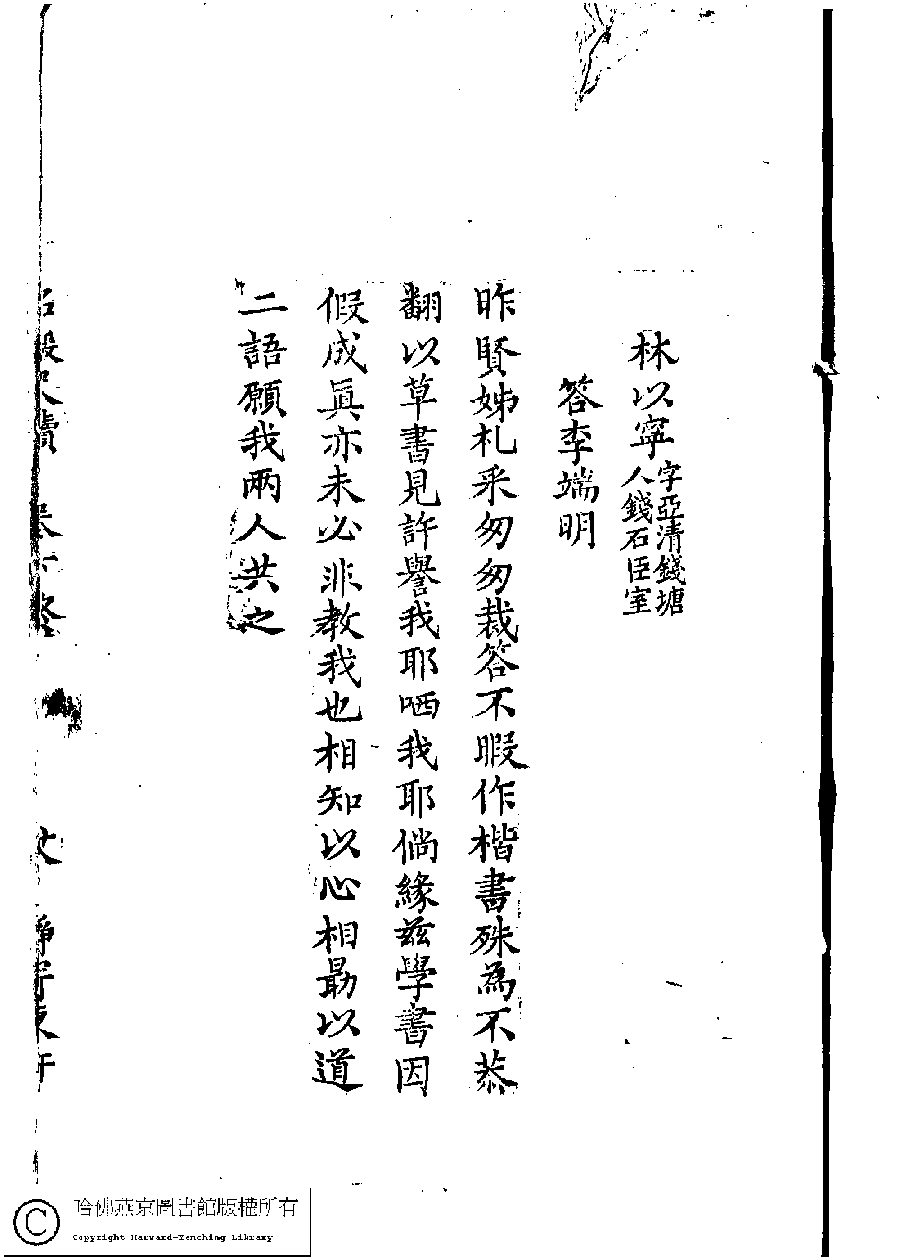 林以寧字亞清錢塘人錢石臣室
答李端明
昨賢姊札來匆匆裁答不暇作楷書殊為不恭
翻以草書見許譽我耶哂我耶倘緣茲學書因
假成眞亦未必非教我也相知以心相勗以道
二語願我兩人共之
哈佛燕京圖書館版權所有
Copyright Harvard-Yenching Library